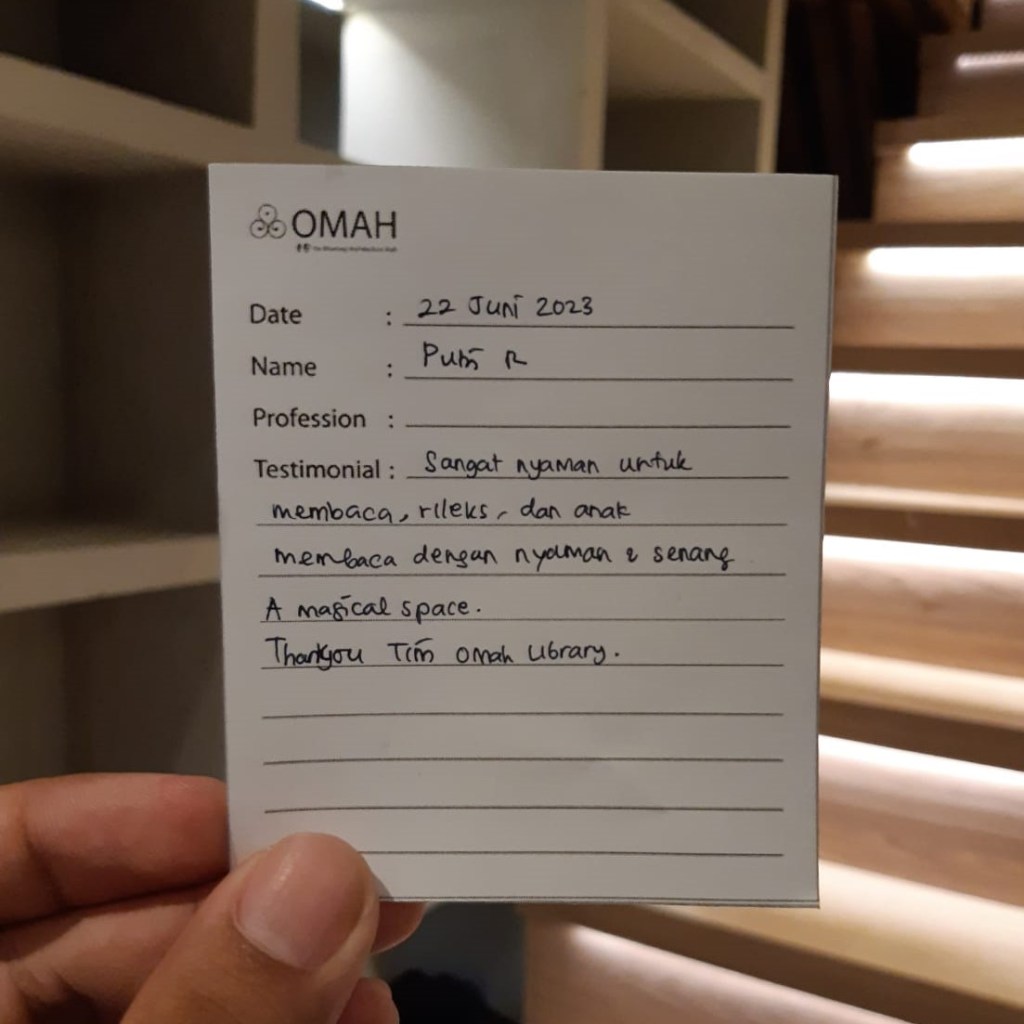 OMAH
Date : 22 Juni 2023
Name : Putri R
Profession :
Testimonial : Sangat nyaman untuk
membaca, rileks, dan anak
membaca dengan nyaman & senang
A magical space.
Thankyou Tim Omah Library.